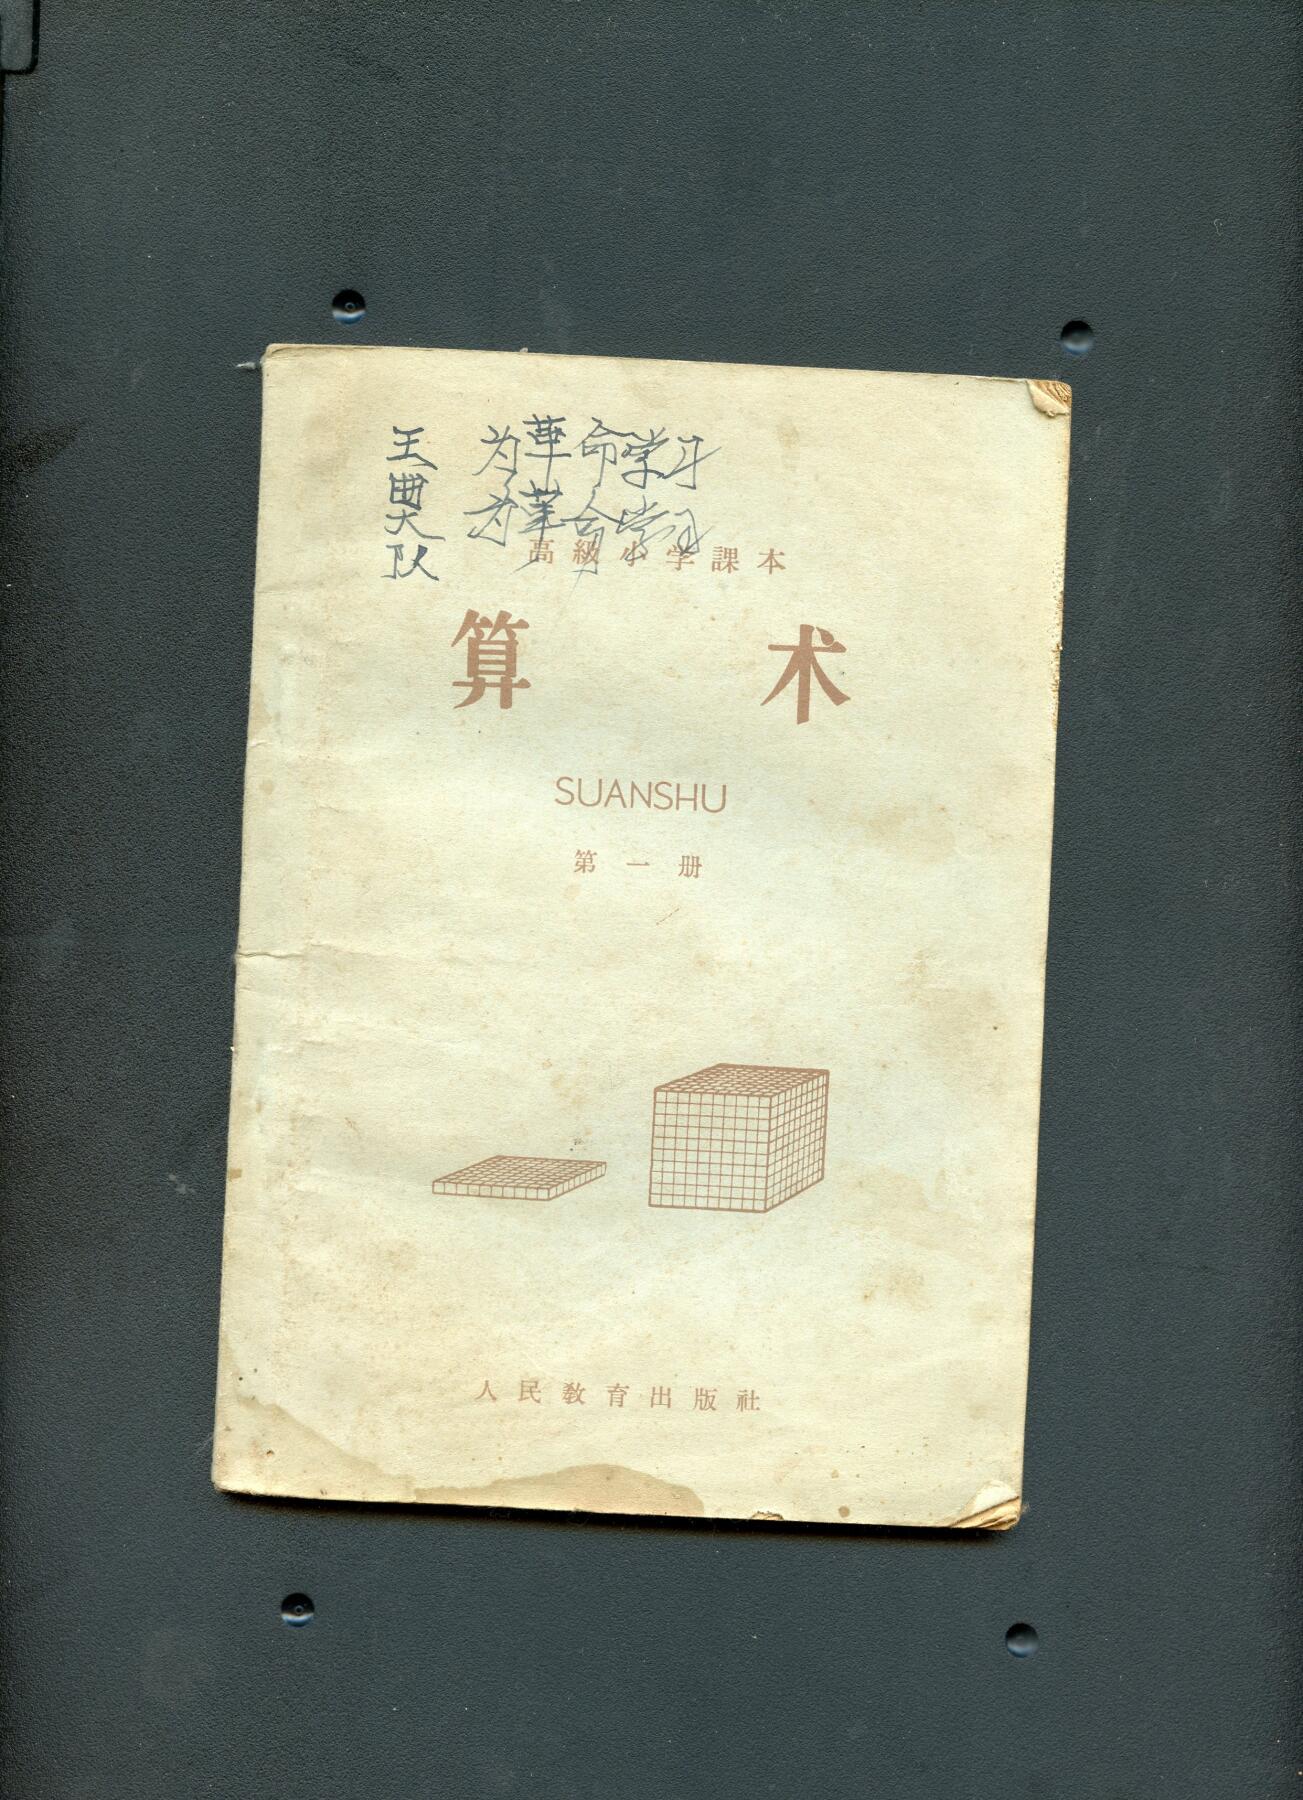 王 为革命学习
为革命学习
大
队
高級小学課本
算术
SUANSHU
第一册
人民教育出版社